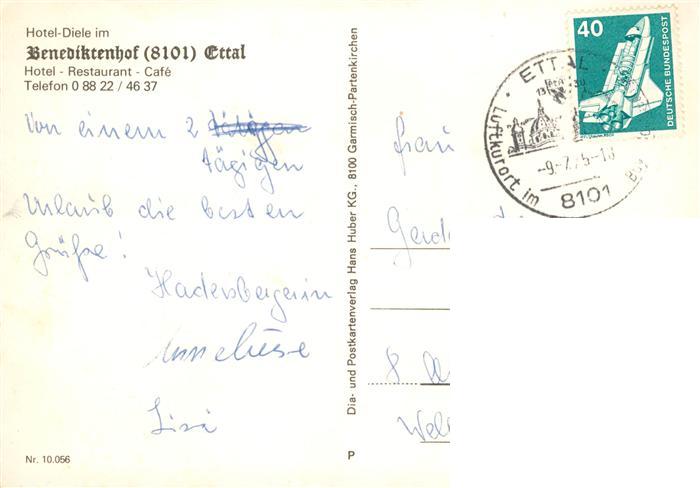 Hotel-Diele im
Benediktenhof (8101) Ettal
Hotel - Restaurant - Café
Telefon 0 88 22 / 46 37
Von einem 2
tägigen
Urlaub die besten
Grüße!
Hadersbergerin
Anneliese
Lisi
Nr. 10.056
Dia- und Postkartenverlag Hans Huber KG., 8100 Garmisch-Partenkirchen
P
Frau
8
40
DEUTSCHE BUNDESPOST
ETTAL
Luftkurort im
8101